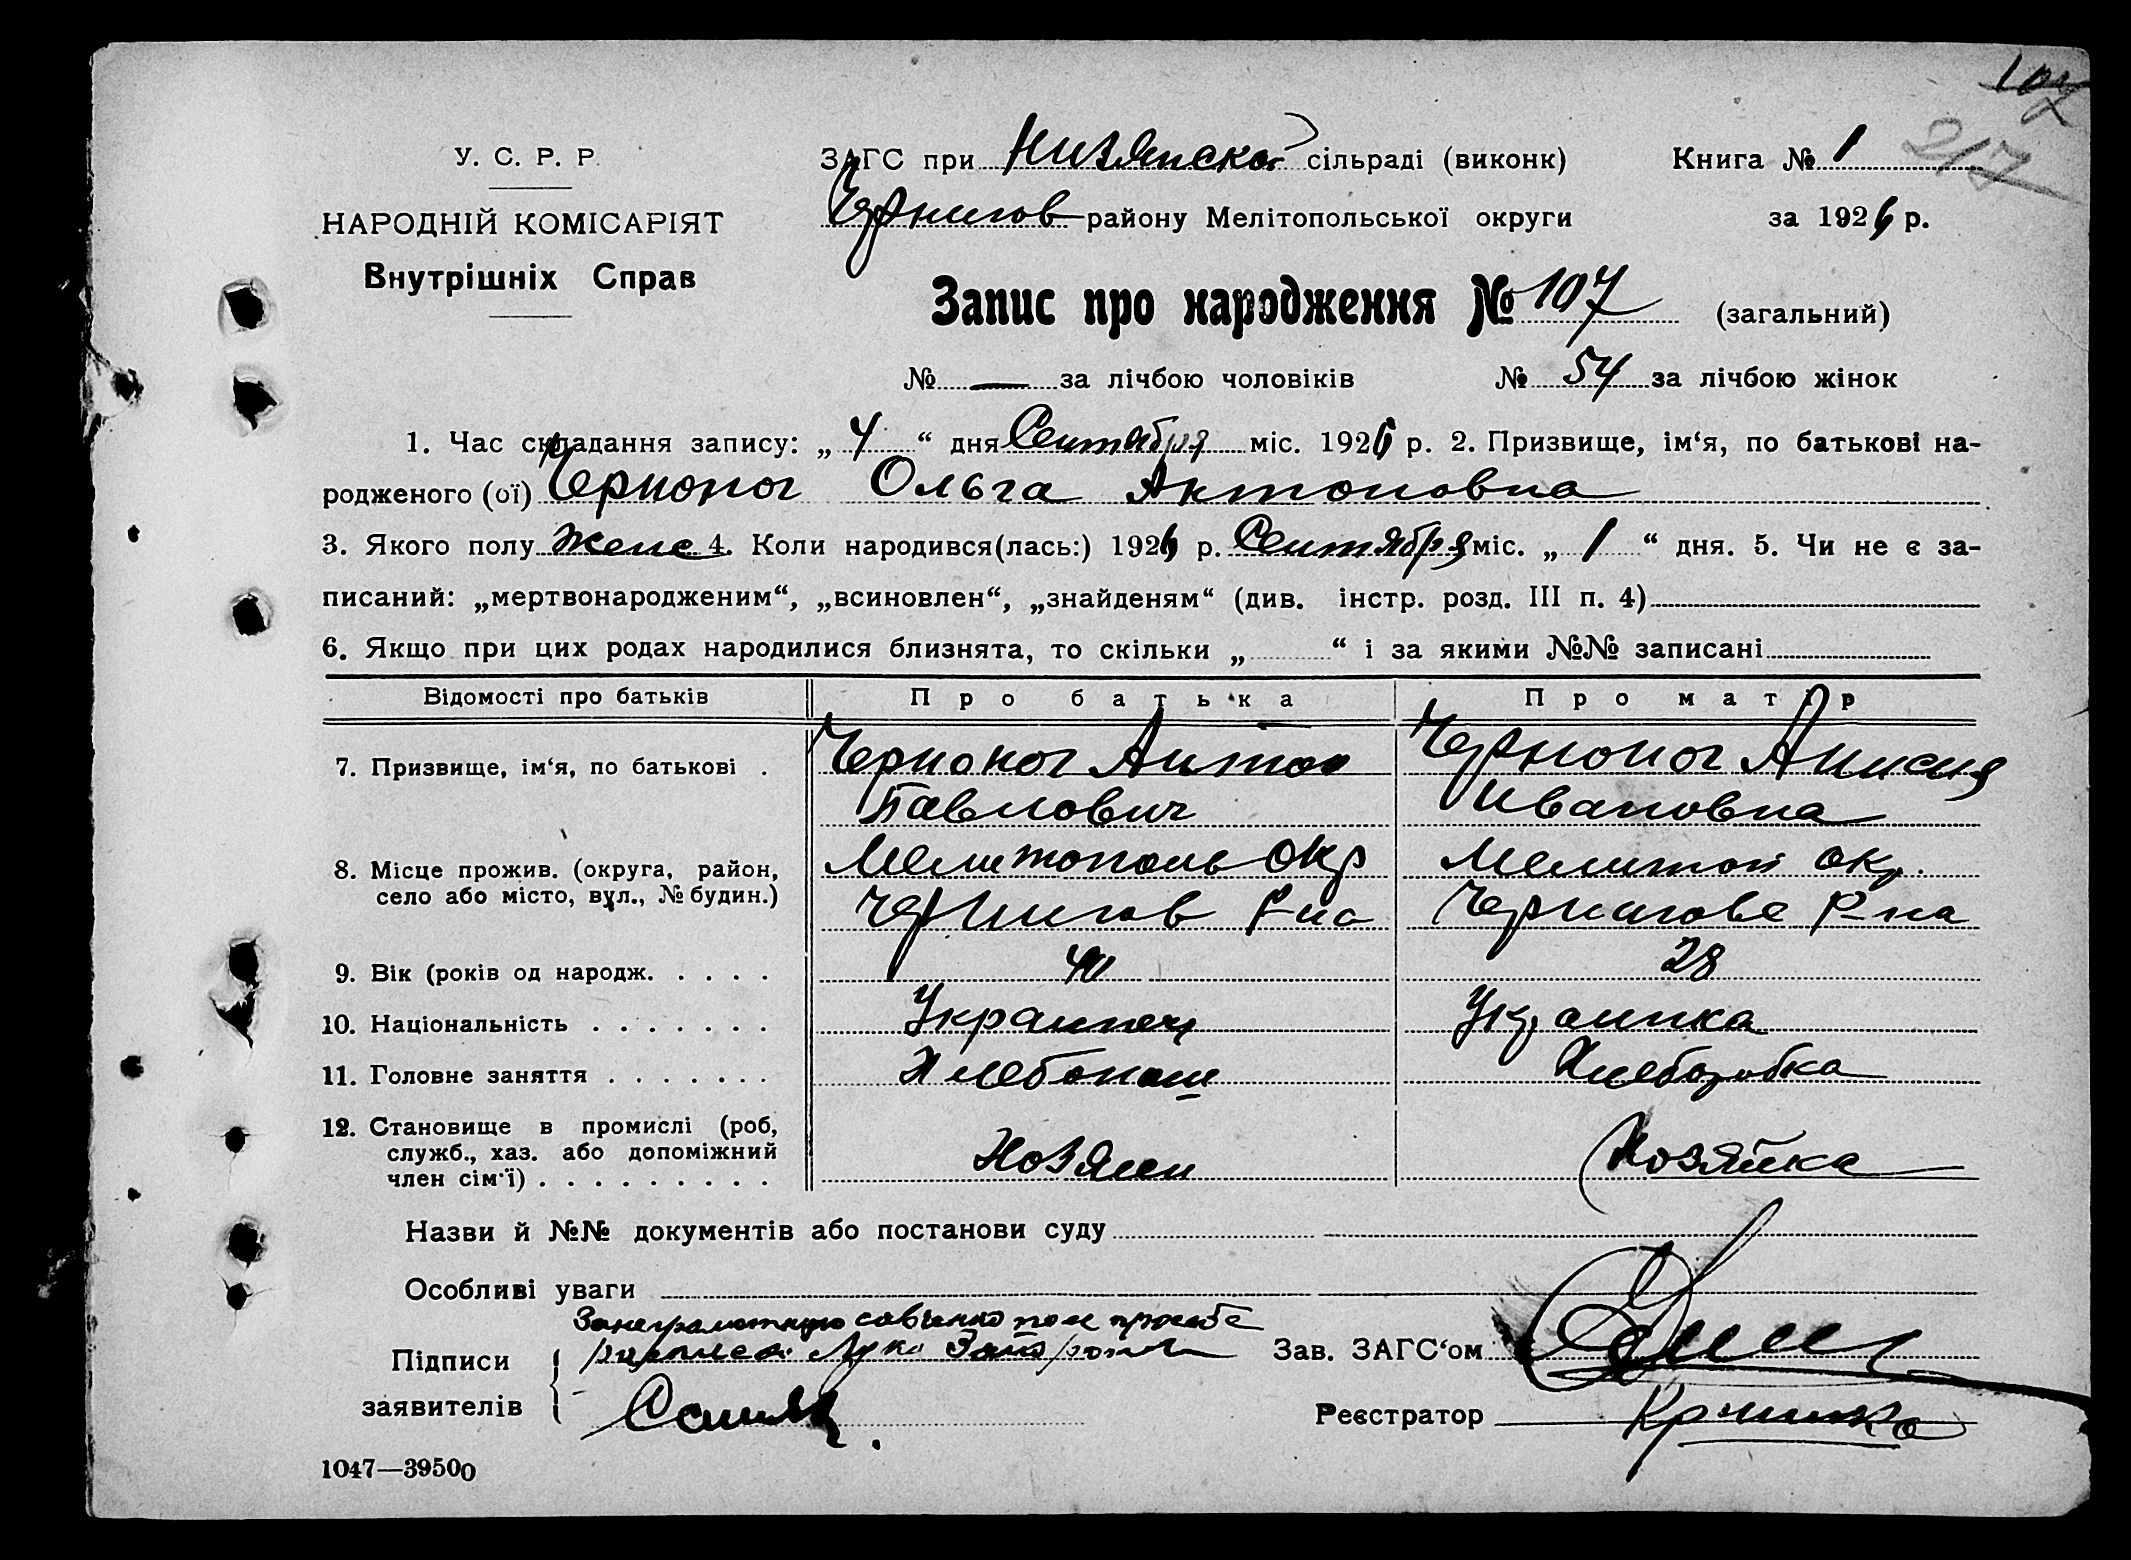 107
217
У. С. Р. Р.
НАРОДНІЙ КОМІСАРІЯТ
Внутрішніх Справ
ЗАГС при Низянской сільраді (виконк) Книга № 1
Чернигов району Мелітопольської округи за 1926 р.
Запис про народження № 107 (загальний)
№ — за лічбою чоловіків № 54 за лічбою жінок
1. Час складання запису: „ 4 “ дня Сентября міс. 1926 р. 2. Призвище, ім‘я, по батькові на-
родженого (ої) Черноног Ольга Антоновна
3. Якого полу Женс 4. Коли народився(лась:) 1926 р. Сентября міс. „ 1 “ дня. 5. Чи не є за-
писаний: „мертвонародженим“, „всиновлен“, „знайденям“ (див. інстр. розд. III п. 4)
6. Якщо при цих родах народилися близнята, то скільки „ “ і за якими №№ записані
Відомості про батьків Про батька Про матір
7. Призвище, ім‘я, по батькові . Черноног Антон Черноног Анисия
Павлович Ивановна
8. Місце прожив. (округа, район, Мелитополь окр Мелитоп окр.
село або місто, вул., № будин.) Чернигов Р-на Чернигове Р-на
9. Вік (років од народж. . . . . 40 28
10. Національність . . . . . . . Украинец Украинка
11. Головне заняття . . . . . . . Хлебопаш Хлеборобка
12. Становище в промислі (роб, служб., хаз. або допоміжний член сім‘ї) . . . . . . . . . Хозяин Хозяйка
Назви й №№ документів або постанови суду
Особливі уваги
по ее просьбе
Підписи Зав. ЗАГС‘ом
заявителів Реєстратор
1047—39500